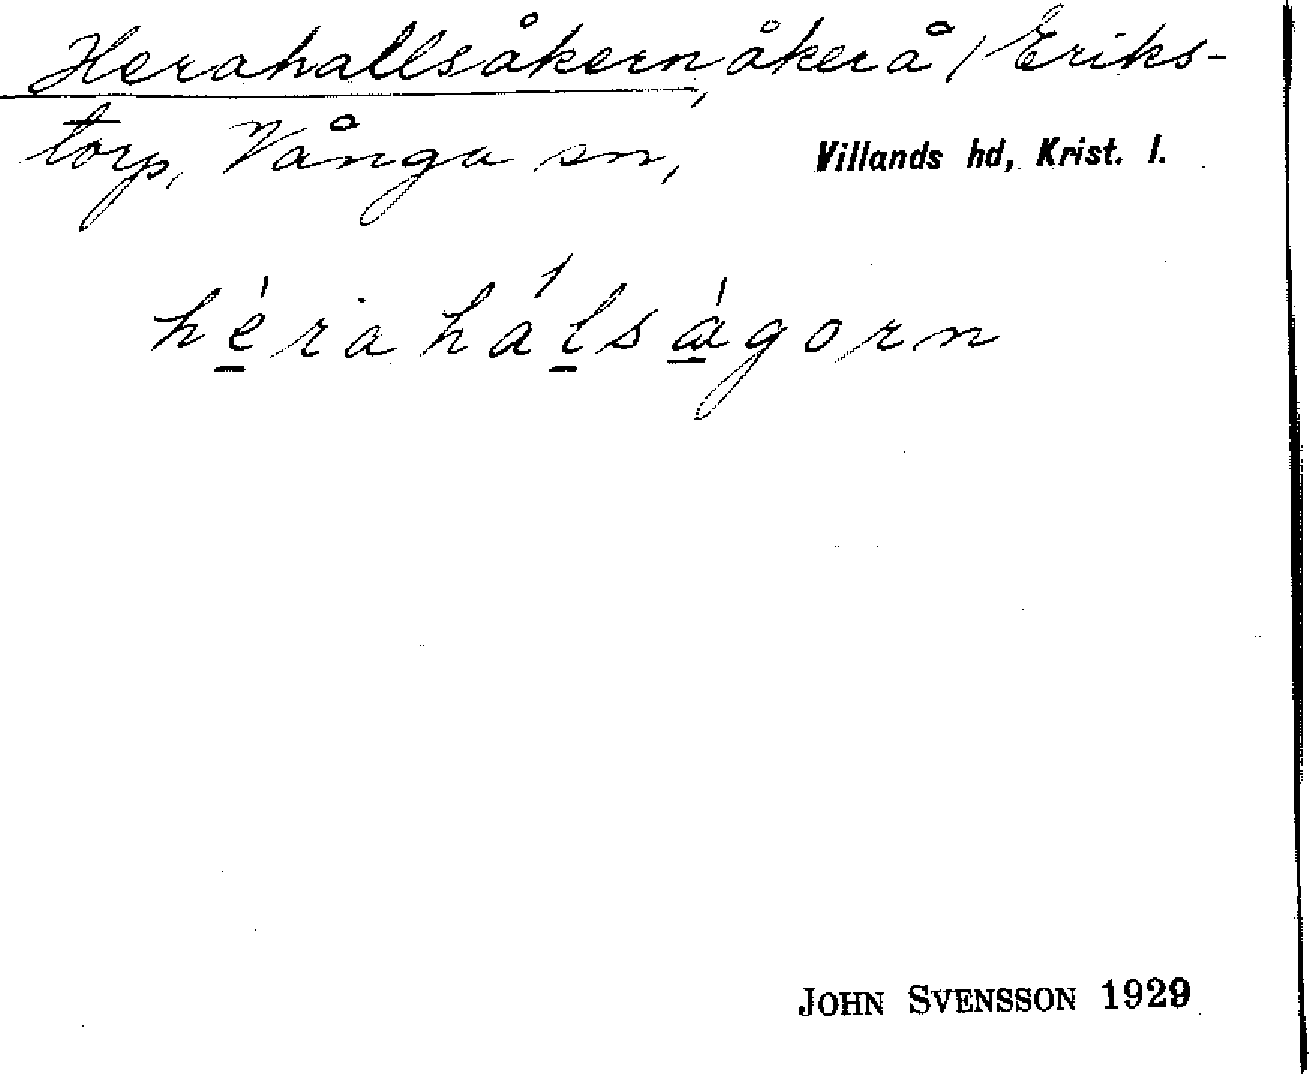 Herahallsåkern, åker å / Eriks-
torp, Vånga sn, Villands hd, Krist. l.
hérahálságorn
JOHN SVENSSON 1929